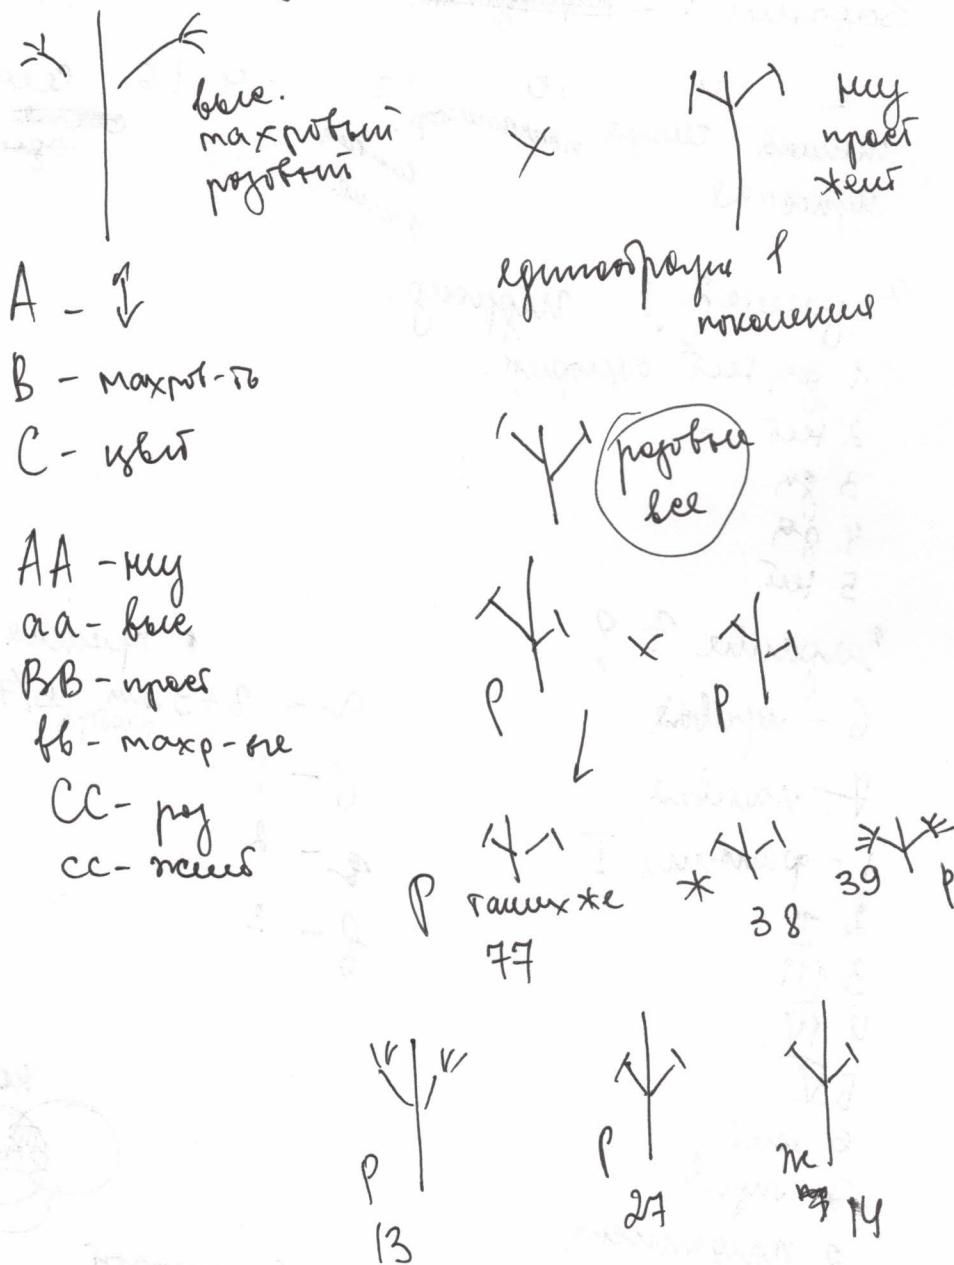 выс.
махровый
розовый
×
низ
прост
желт
единообразие 1
поколения
А - ↕
В - махров-ть
С - цвет
розовые
все
АА - низ
аа - выс
ВВ - прост
вв - махр-ые
СС - роз
сс - желт
р
×
р
р таких же
77
ж
38
39
р
р
13
р
27
ж
14